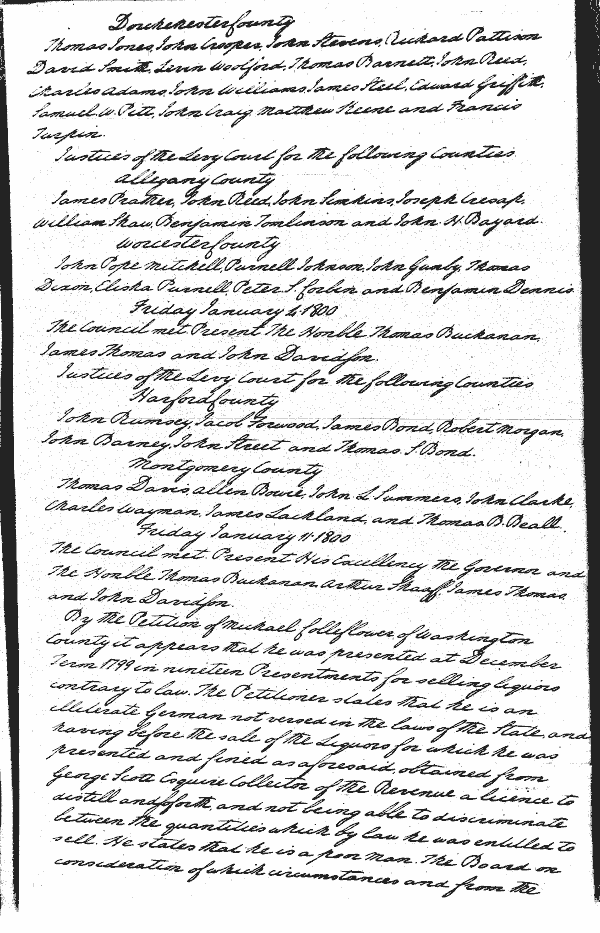 Dorchester County
Thomas Jones, John Cooper, John Stevens, Richard Pattison
David Smith, Levin Woolford, Thomas Barnett, John Reed,
Charles Adams, John Williams, James Steel, Edward Griffith,
Samuel W. Pitt, John Craig, Matthew Keene and Francis
Turpin.
Justices of the Levy Court for the following Counties
Allegany County
James Prather, John Reed, John Simkins, Joseph Cresap,
William Shaw, Benjamin Tomlinson and John H. Bayard.
Worcester County
John Pope Mitchell, Purnell Johnson, John Gunby, Thomas
Dixon, Elisha Purnell, Peter S. Corbin and Benjamin Dennis
Friday January 4 1800
The Council met Present The Honble Thomas Buchanan,
James Thomas and John Davidson.
Justices of the Levy Court for the following Counties
Harford County
John Rumsey, Jacob Forwood, James Bond, Robert Morgan,
John Barney, John Street and Thomas S. Bond.
Montgomery County
Thomas Davis, Allen Bowie, John L. Summers, John Clarke,
Charles Wayman, James Lackland, and Thomas B. Beall.
Friday January 11 1800
The Council met. Present His Excellency the Governor and
The Honble Thomas Buchanan Arthur Shaaff, James Thomas,
and John Davidson.
By the Petition of Michael Colleflower of Washington
County it appears that he was presented at December
Term 1799 in nineteen Presentments for selling liquors
contrary to law. The Petitioner states that he is an
illiterate German not versed in the laws of the State, and
having before the sale of the Liquors for which he was
presented and fined as aforesaid, obtained from
George Scott Esquire Collector of the Revenue a licence to
distill and so forth and not being able to discriminate
between the quantities which by law he was entitled to
sell. He states that he is a poor man. The Board on
consideration of which circumstances and from the